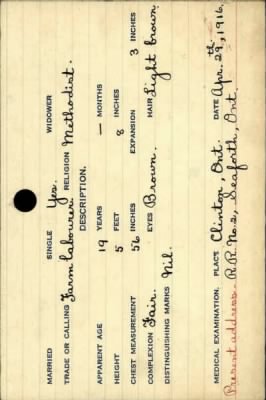 MARRIED SINGLE Yes. WIDOWER
TRADE OR CALLING Farm labourer. RELIGION Methodist.
DESCRIPTION.
APPARENT AGE 19 YEARS — MONTHS
HEIGHT 5 FEET 8 INCHES
CHEST MEASUREMENT 36 INCHES EXPANSION 3 INCHES
COMPLEXION Fair. EYES Brown. HAIR Light brown.
DISTINGUISHING MARKS Nil.
MEDICAL EXAMINATION. PLACE Clinton, Ont. DATE Apr. 29th, 1916.
Present address - R.R. No. 2, Seaforth, Ont.